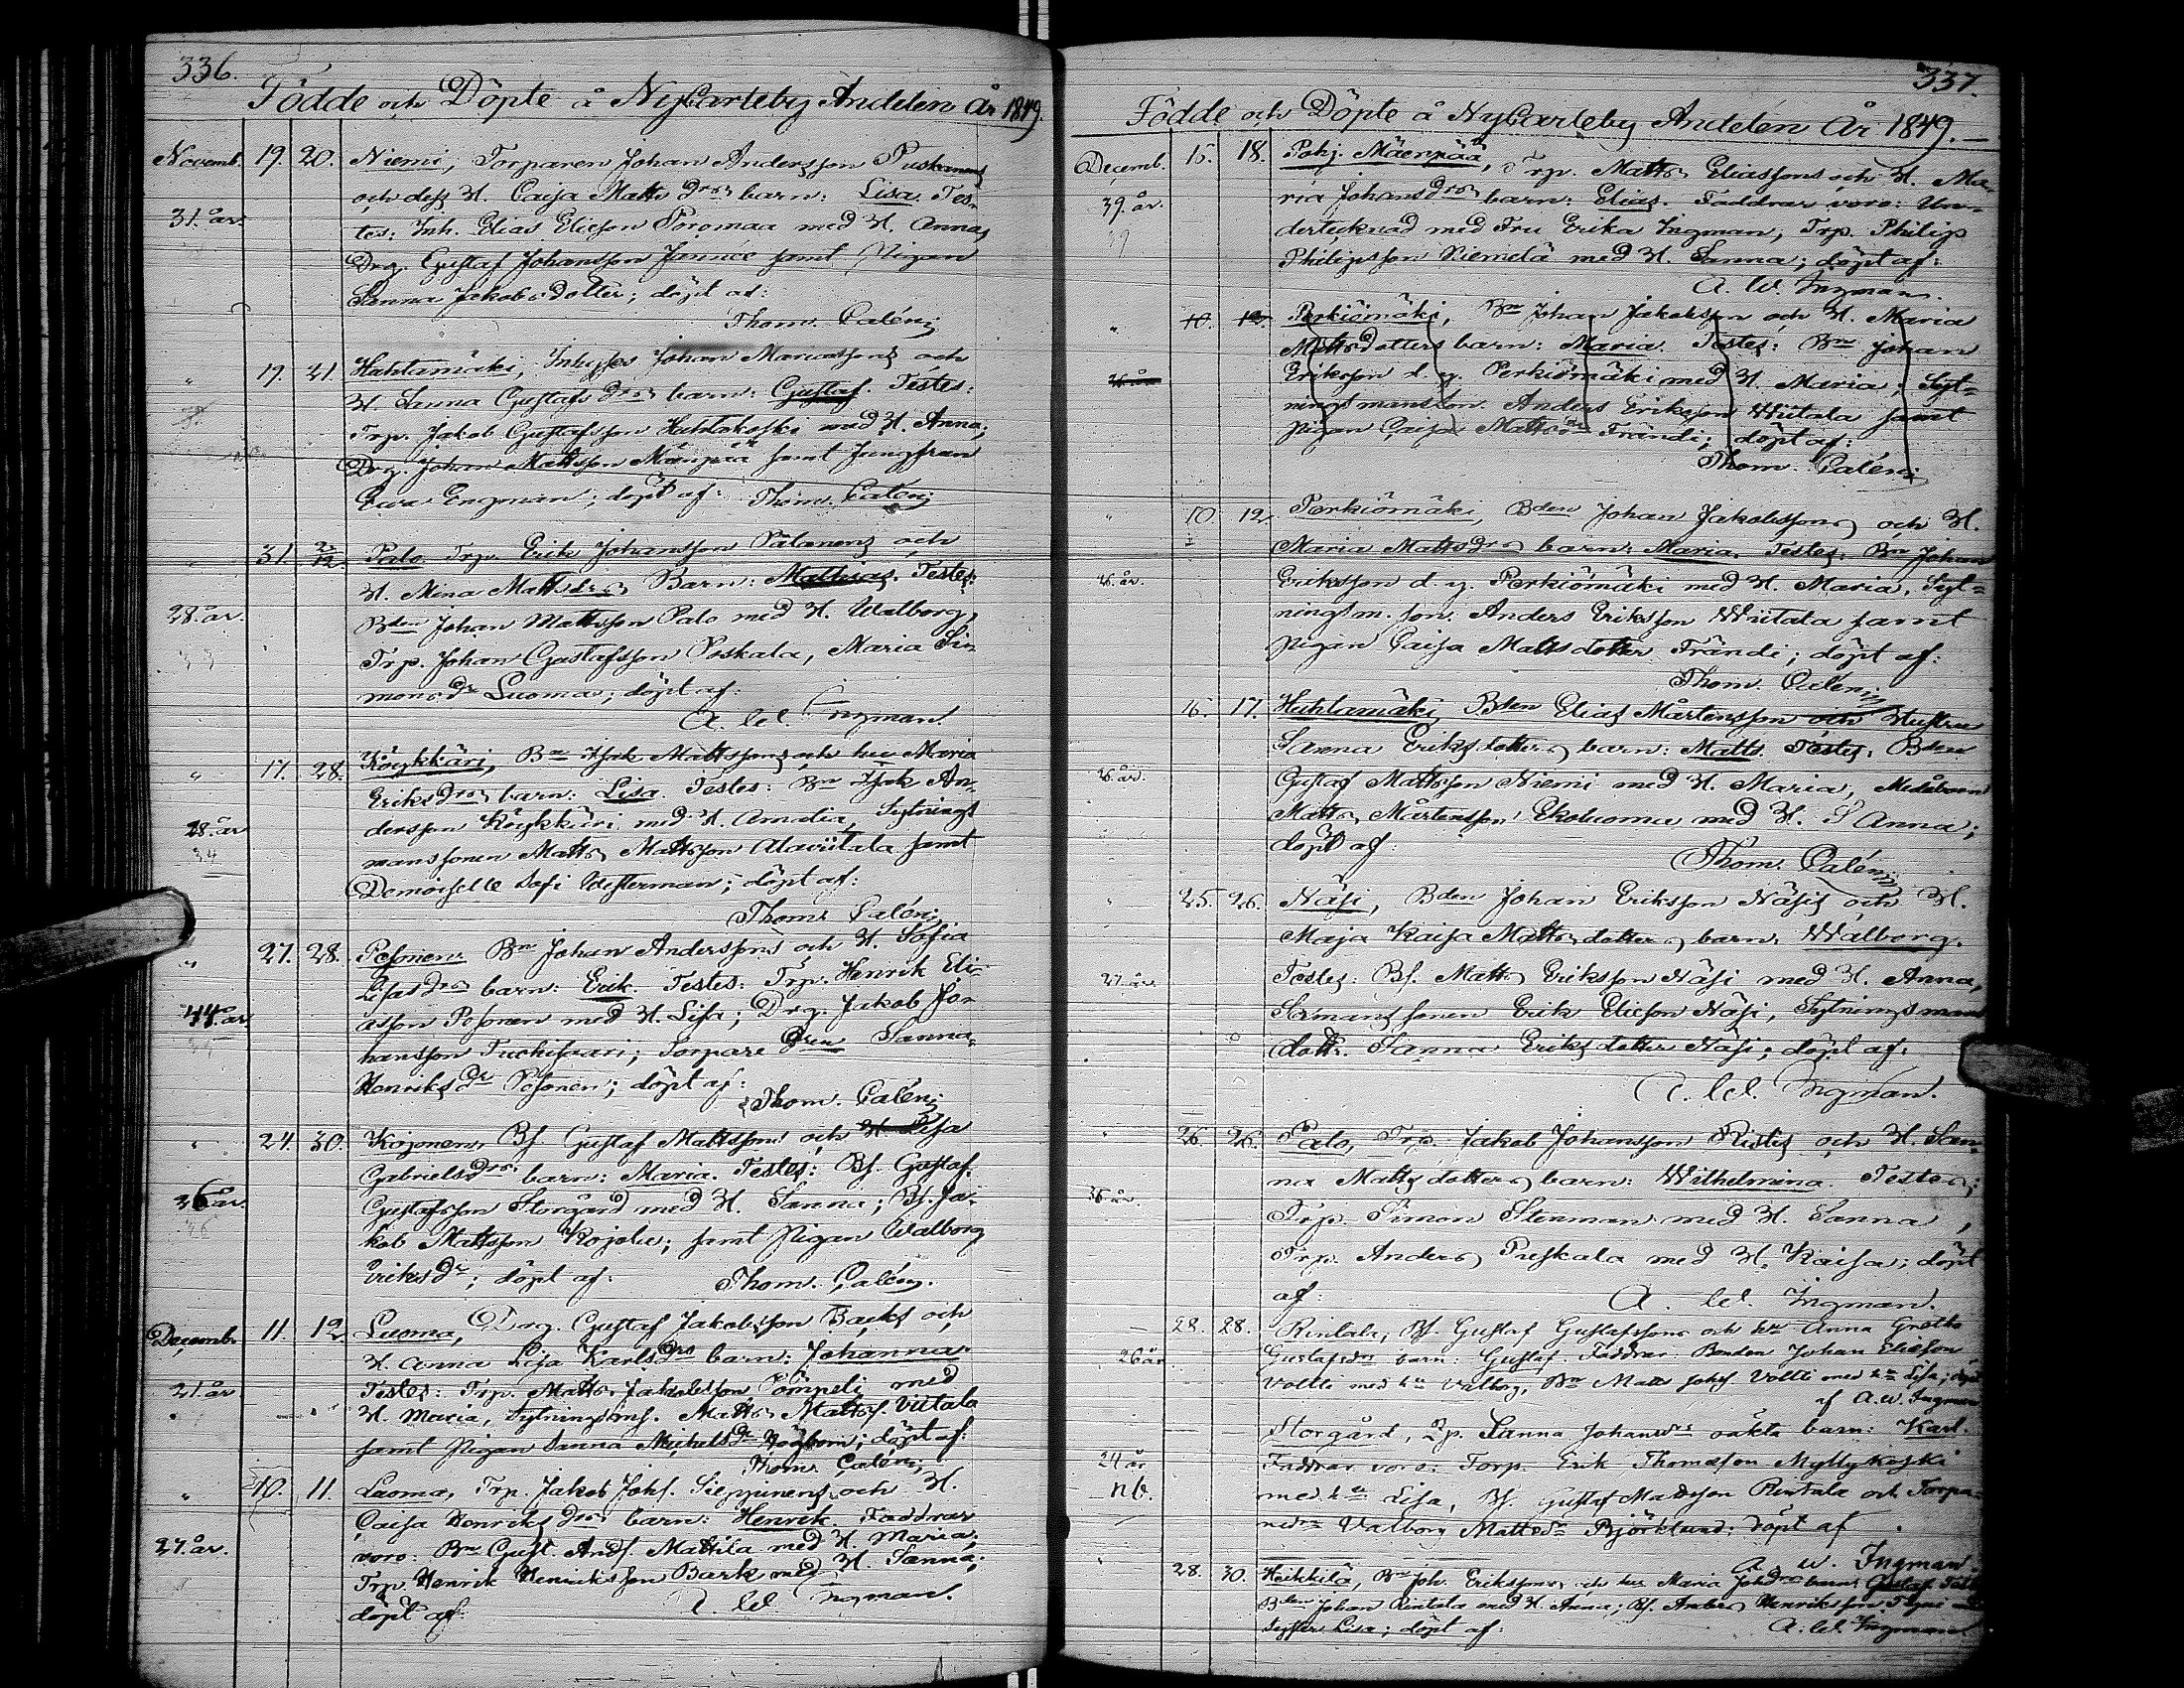 336.
Födde och Döpte å NyCarleby Andelen År 1849.
Novemb. 19. 20. Niemi, Torparen Johan Andersson
och dess H. Caisa Matts drs barn: Lisa. Tes-
31. år. tes: Inh. Elias Elieson Poromaa med H. Anna,
Drg. Gustaf Johansson samt Pigan
Sanna Jakobsdotter; döpt af:
Thom. Caléni
" 19. 21. Huhtamäki, Inhyses Johan och
H. Sanna Gustafs drs barn: Gustaf. Testes:
Trp. Jakob Gustafsson Huhtakoski med H. Anna;
Drg. Johan Mattsson Mäenpää samt Jungfrun
Engman; döpt af: Thom. Caléni
" 31. 2/12. Palo Trp. Erik Johansson och
H. Mina Mattsdrs Barn: Mathias. Testes:
28. år. Bden Johan Mattsson Palo med H. Walborg,
Trp. Johan Gustafsson Puskala, Maria Si-
mons dr Luoma; döpt af:
A. W. Ingman.
" 17. 28. Köykkäri, Bn Isak Mattssons och hu Maria
Eriks drs barn: Lisa. Testes: Bn Isak An-
28. år dersson Köykkäri med H. Amalia, Sytnings
34 manssonen Matts Mattsson Alaviitala samt
Demoiselle Sofi Westerman; döpt af:
Thom. Caléni
" 27. 28. Pesonen Bn Johan Anderssons och H. Sofia
drs barn: Erik. Testes: Trp. Henrik Eli-
44. år. asson Pesonen med H. Lisa; Drg. Jakob Jo-
hansson Tuohisaari; Torpare dren Sanna
Henriks dr Pesonen; döpt af:
Thom. Caléni
" 24. 30. Kojonen, Bf Gustaf Mattsson och H Lisa
Gabriels drs barn: Maria. Testes: Bf. Gustaf
36 år. Gustafsson Storgård med H. Sanna; Bf. Ja-
36 kob Mattsson Kojola; samt Pigan Walborg
Eriks dr; döpt af: Thom. Calén.
Decemb. 11. 12 Luoma, Drg. Gustaf Jakobsson Backs och
H. Anna Lisa Karls drs barn: Johanna
21. år. Testes: Trp. Matts Jakobsson Tömpeli med
H. Maria, Sytningsmf. Matts Mattsf. Viitala
samt Pigan Sanna Michels dr; döpt af:
Thom. Caléni
" 10. 11. Luoma, Trp. Jakob Johs. och H.
Caisa Henriks drs barn: Henrik. Faddrar
27. år. voro: Bn Gust. Ands. Mattila med H. Maria;
Trp. Henrik Henriksson Bark med H. Sanna;
döpt af: A. W. Ingman.
337.
Födde och Döpte å NyCarleby Andelen År 1849. —
Decemb. 15. 18. Pohj. Mäenpää, Trp. Matts Eliassons och H. Ma-
39. år. ria Johans drs barn: Elias. Faddrar voro: Un-
39 dertecknad med Fru Erika Ingman, Trp. Philip
Philipsson Niemelä med H. Sanna; döpt af:
A. W. Ingman.
" 10. 12. Perkiömäki, Bn Johan Jakobsson och H. Maria
Mattsdotters barn: Maria. Testes: Bn Johan
26. år Eriksson d. y. Perkiömäki med H. Maria; Syt-
ningsmansson Anders Eriksson Wiitala samt
Pigan Caisa Matts dr Frändi; döpt af:
Thom. Caléni
" 10 12 Perkiömäki, Bden Johan Jakobssons och H.
Maria Matts drs barn: Maria. Testes: Bn Johan
26. år. Eriksson d. y. Perkiömäki med H. Maria, Syt-
ningsm. son. Anders Eriksson Wiitala samt
Pigan Caisa Mattsdotter Frändi; döpt af:
Thom. Calén
16. 17. Huhtamäki Bden Elias Mårtensson och Hustru
Sanna Eriksdotters barn: Matts. Testes: Bden
26. år. Gustaf Mattsson Niemi med H. Maria,
Matts Mårtensson Ekoluoma med H. Sanna;
döpt af: Thom. Calén
" 25. 26. Näsi, Bden Johan Eriksson Näsis och H.
Maja Kaisa Mattsdotters barn: Walborg.
27. år. Testes: Bf. Matts Eriksson Näsi med H. Anna,
sonen Erik Elieson Näsi, Sytningsmans
dottr. Sanna Eriksdotter Näsi; döpt af:
A. W. Ingman.
" 26. 26. Palo, Trp. Jakob Johansson Ristis och H. San-
na Mattsdotters barn: Wilhelmina. Testes:
36 år. Trp. Simon Stenman med H. Sanna,
Trp. Anders Puskala med H. Kaisa; döpt
af: A. W. Ingman.
— 28. 28. Rintala, Bf. Gustaf Gustafssons och hu Anna Greta
26 år Gustafs drs barn: Gustaf. Faddrar Bonden Johan Elieson
Voltti med hu Valborg, Bn Matts Johs. Voltti med hu Lisa; döpt
af A. W. Ingman
Storgård, Pp. Sanna Johans drs oäkta barn: Karl.
24 år Faddrar voro: Torp. Erik Thomasson Myllykoski
nb. med hu Lisa, Bf. Gustaf Mattsson Rintala och Torpa-
Valborg Matts dr Björklund; döpt af
A. W. Ingman
" 28. 30. Heikkilä, Bn Joh. Erikssons och hus Maria Joh drs barn: Gustaf. Test.
Bden Johan Rintala med H. Anna; Bf. Anders Henriksson
Lisa; döpt af: A. W. Ingman.